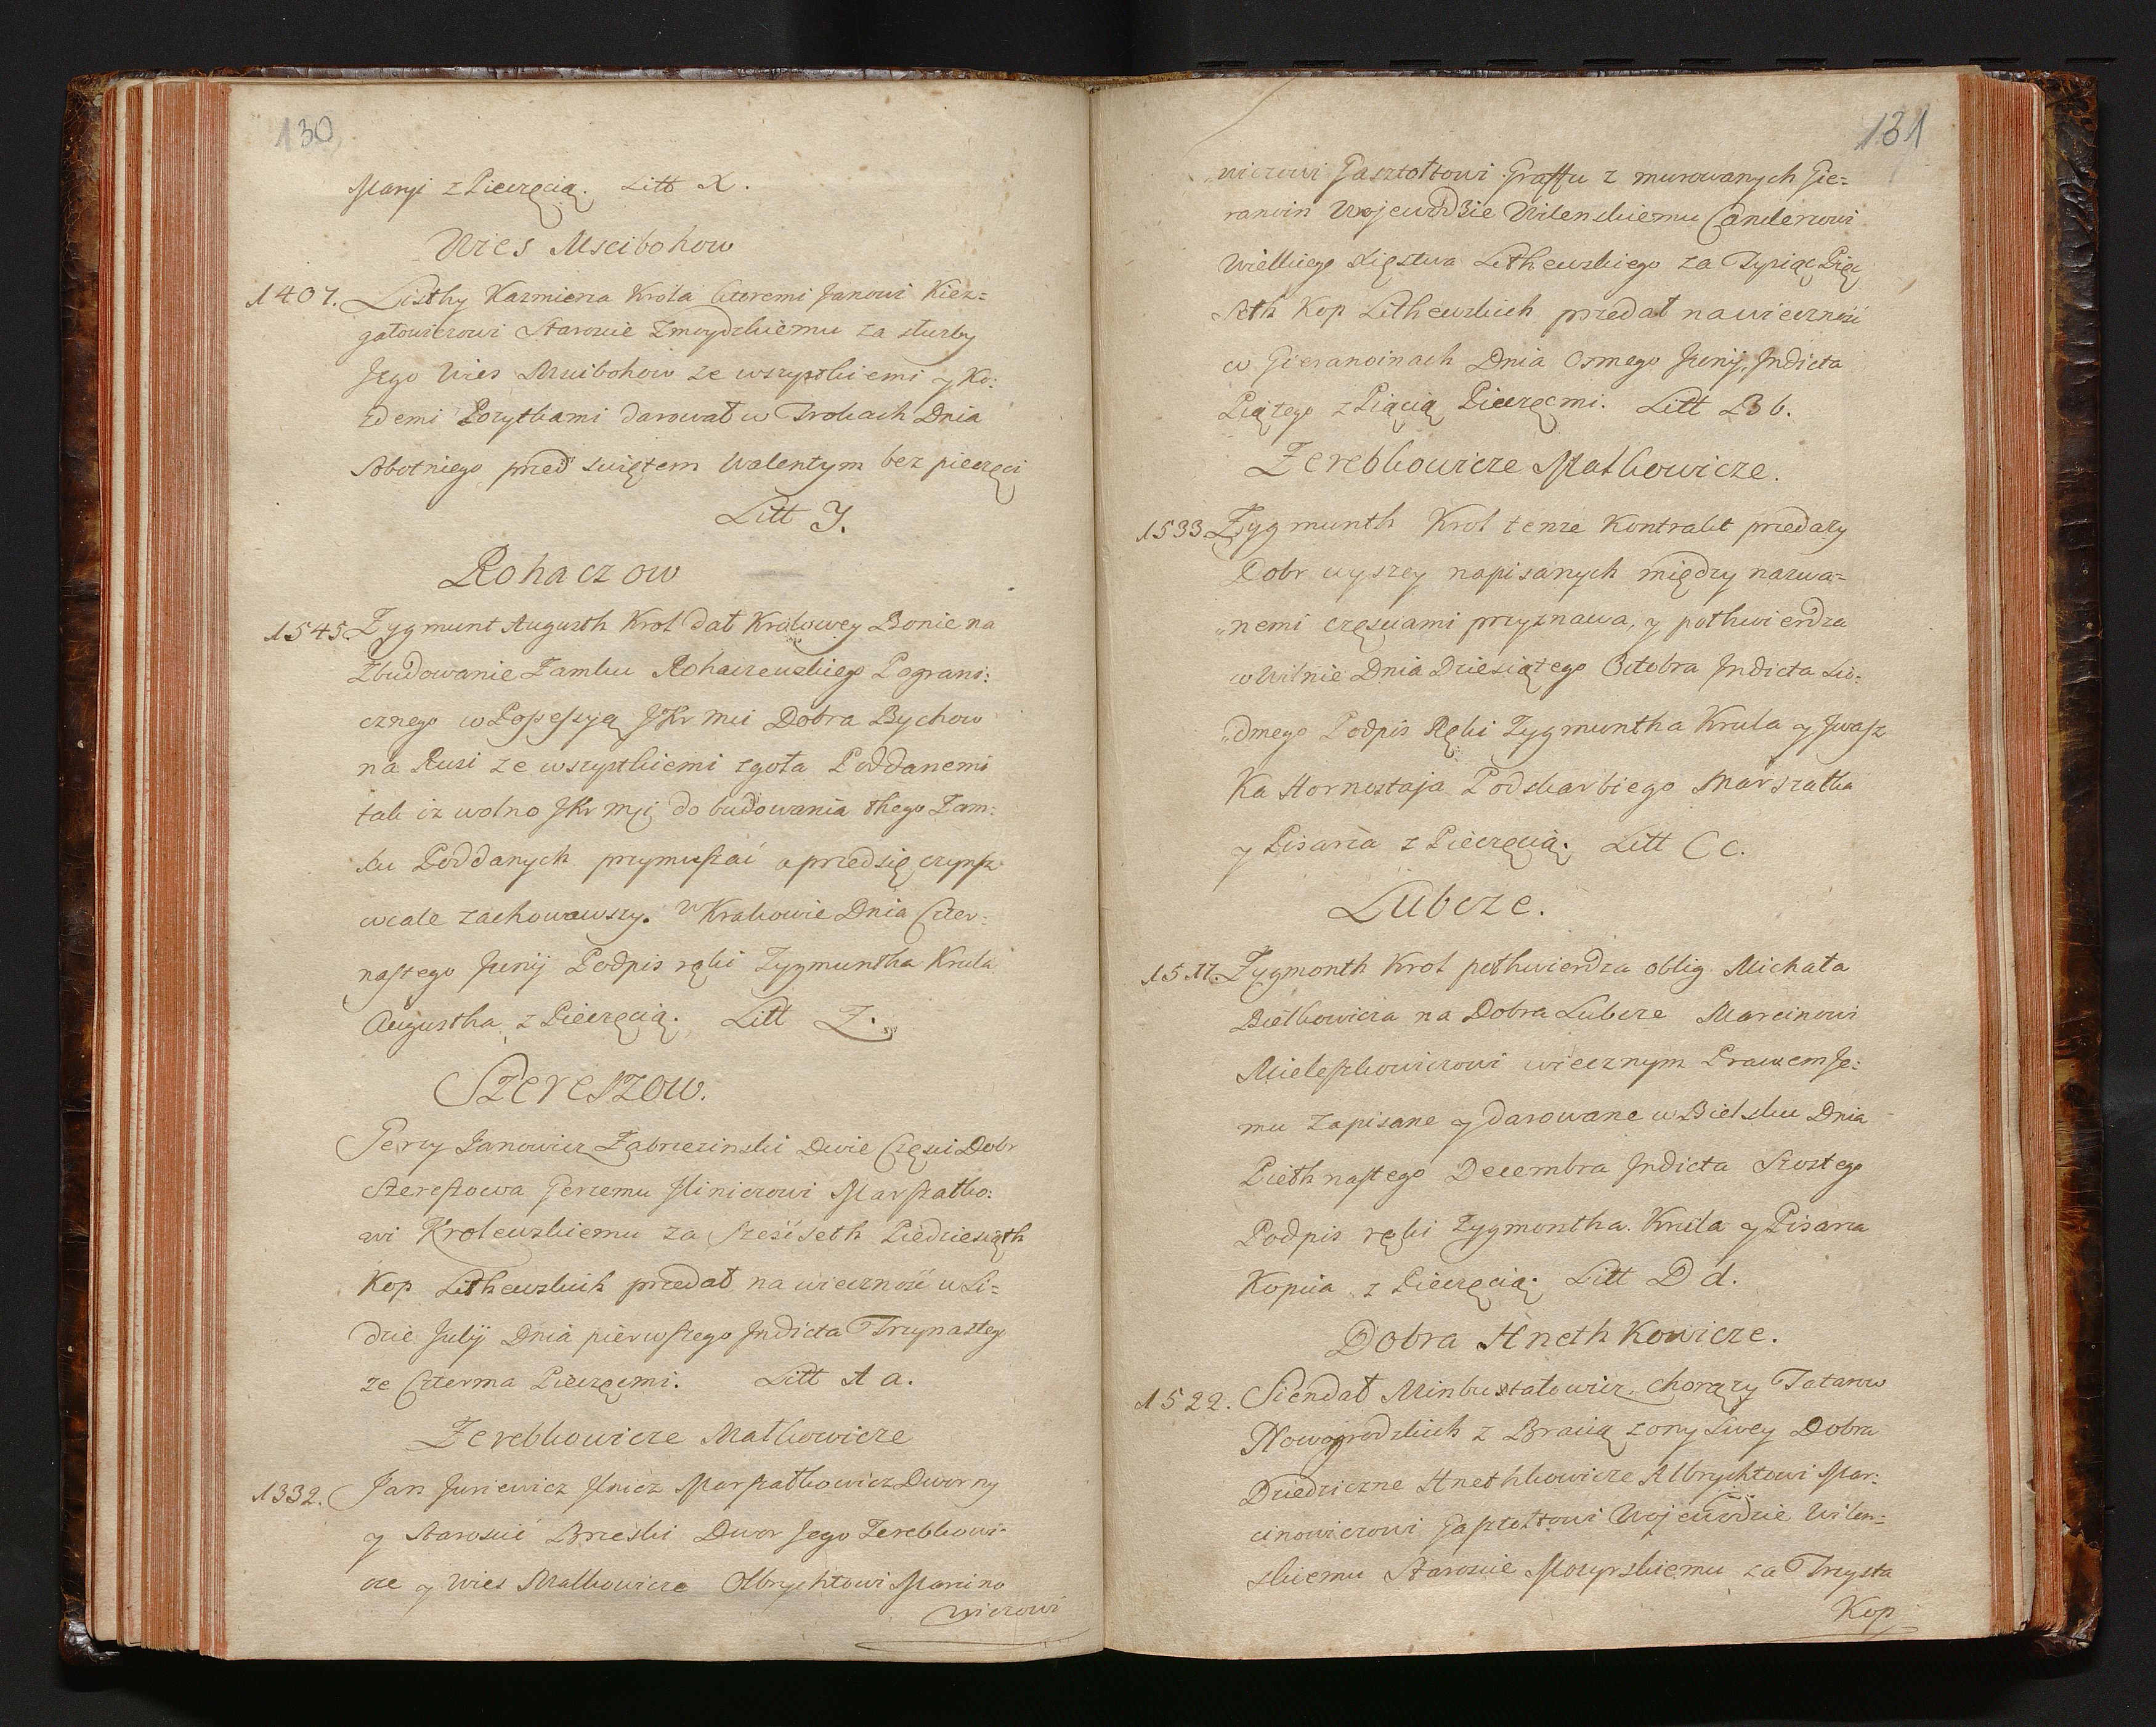 130
Maryi z Pieczęcią. Litt X.
Wies Mscibohow
1407. Listhy Kazmierza Krola ktoremi Janowi Kiez=
gałowiczowi Staroscie Zmoydzkiemu za służby
Jego Wies Mscibohow ze wszystkiemi y Ko:
zdemi Pozytkami darował w Trokach Dnia
Sobotniego przed swiętem Walentym bez pieczęci
Litt Y.
Rohaczow
1545. Zygmunt Augusth Krol dał Krolowey Bonie na
Zbudowanie Zamku Rohaczewskiego Pograni:
cznego w Possessyą JKr Mci Dobra Bychow
na Rusi ze wszystkiemi zgoła Poddanemi
tak iz wolno JKr Mci do budowania thego Zam:
ku Poddanych przymuszać a przedsię czynsz
wcale zachowawszy. w Krakowie Dnia Czter:
nastego Junij Podpis ręki Zygmuntha Krula
Augustha z Pieczęcią. Litt Z.
Szereszow.
Jerzy Janowicz Zabrzezinski Dwie Częsci Dobr
Szereszowa Jerzemu Iliniczowi Marszałko:
wi Krolewskiemu za Sześćseth Piedziesiąth
Kop Lithewskich przedał na wieczność w Li=
dzie Julij Dnia pierwszego Indicta Trzynastego
ze Czterma Pieczęcmi. Litt A a.
Zerebkowicze Małkowicze
1332. Jan Juriewicz Ilnicz Marszałkowicz Dworny
y Staroscic Brzeski Dwor Jego Zerebkowi-
cze y Wies Malkowicze Olbrychtowi Marcino
wiczowi
131
wiczowi Gasztołtowi Graffu z murowanych Gie=
ranoin Wojewodzie Wilenskiemu Canclerzowi
Wielkiego Xięstwa Lithewskiego za Tysiąc Pięć
Seth Kop Lithewskich przedał na wieczność
w Gieranoinach Dnia Osmego Junij, Indicta
Piątego z Piącią Pieczęcmi. Litt B b.
Zerebkowicze Malkowicze.
1533 Zygmunth Krol tenze Kontrakt przedazy
Dobr wyszey napisanych między nazwa=
nemi częsciami przyznawa, y pothwierdza
w Wilnie Dnia Dziesiątego Octobra Indicta Sio:
dmego Podpis Ręki Zygmuntha Krula y Iwasz
Ka Hornostaja Podskarbiego Marszałka
y Pisarza z Pieczęcią. Litt C c.
Lubcze.
1517. Zygmonth Krol pothwierdza oblig Michała
Bielkowicza na Dobra Lubcze Marcinowi
Mieleszkowiczowi wiecznym Prawem Je:
mu zapisane y darowane w Bielsku Dnia
Piethnastego Decembra Indicta Szostego
Podpis ręki Zygmontha Krula y Pisarza
Kopcia z Pieczęcią. Litt D d.
Dobra Hneth Kowicze.
1522. Siendał Minbustałowicz chorązy Tatarow
Nowogrodzkich z Bracią zony swey Dobra
Dziedziczne Hnethkowicze Albrychtowi Mar:
cinowiczowi Gasztoltowi Wojewodzie Wilen=
skiemu Staroscie Mozyrskiemu za Trzysta
Kop